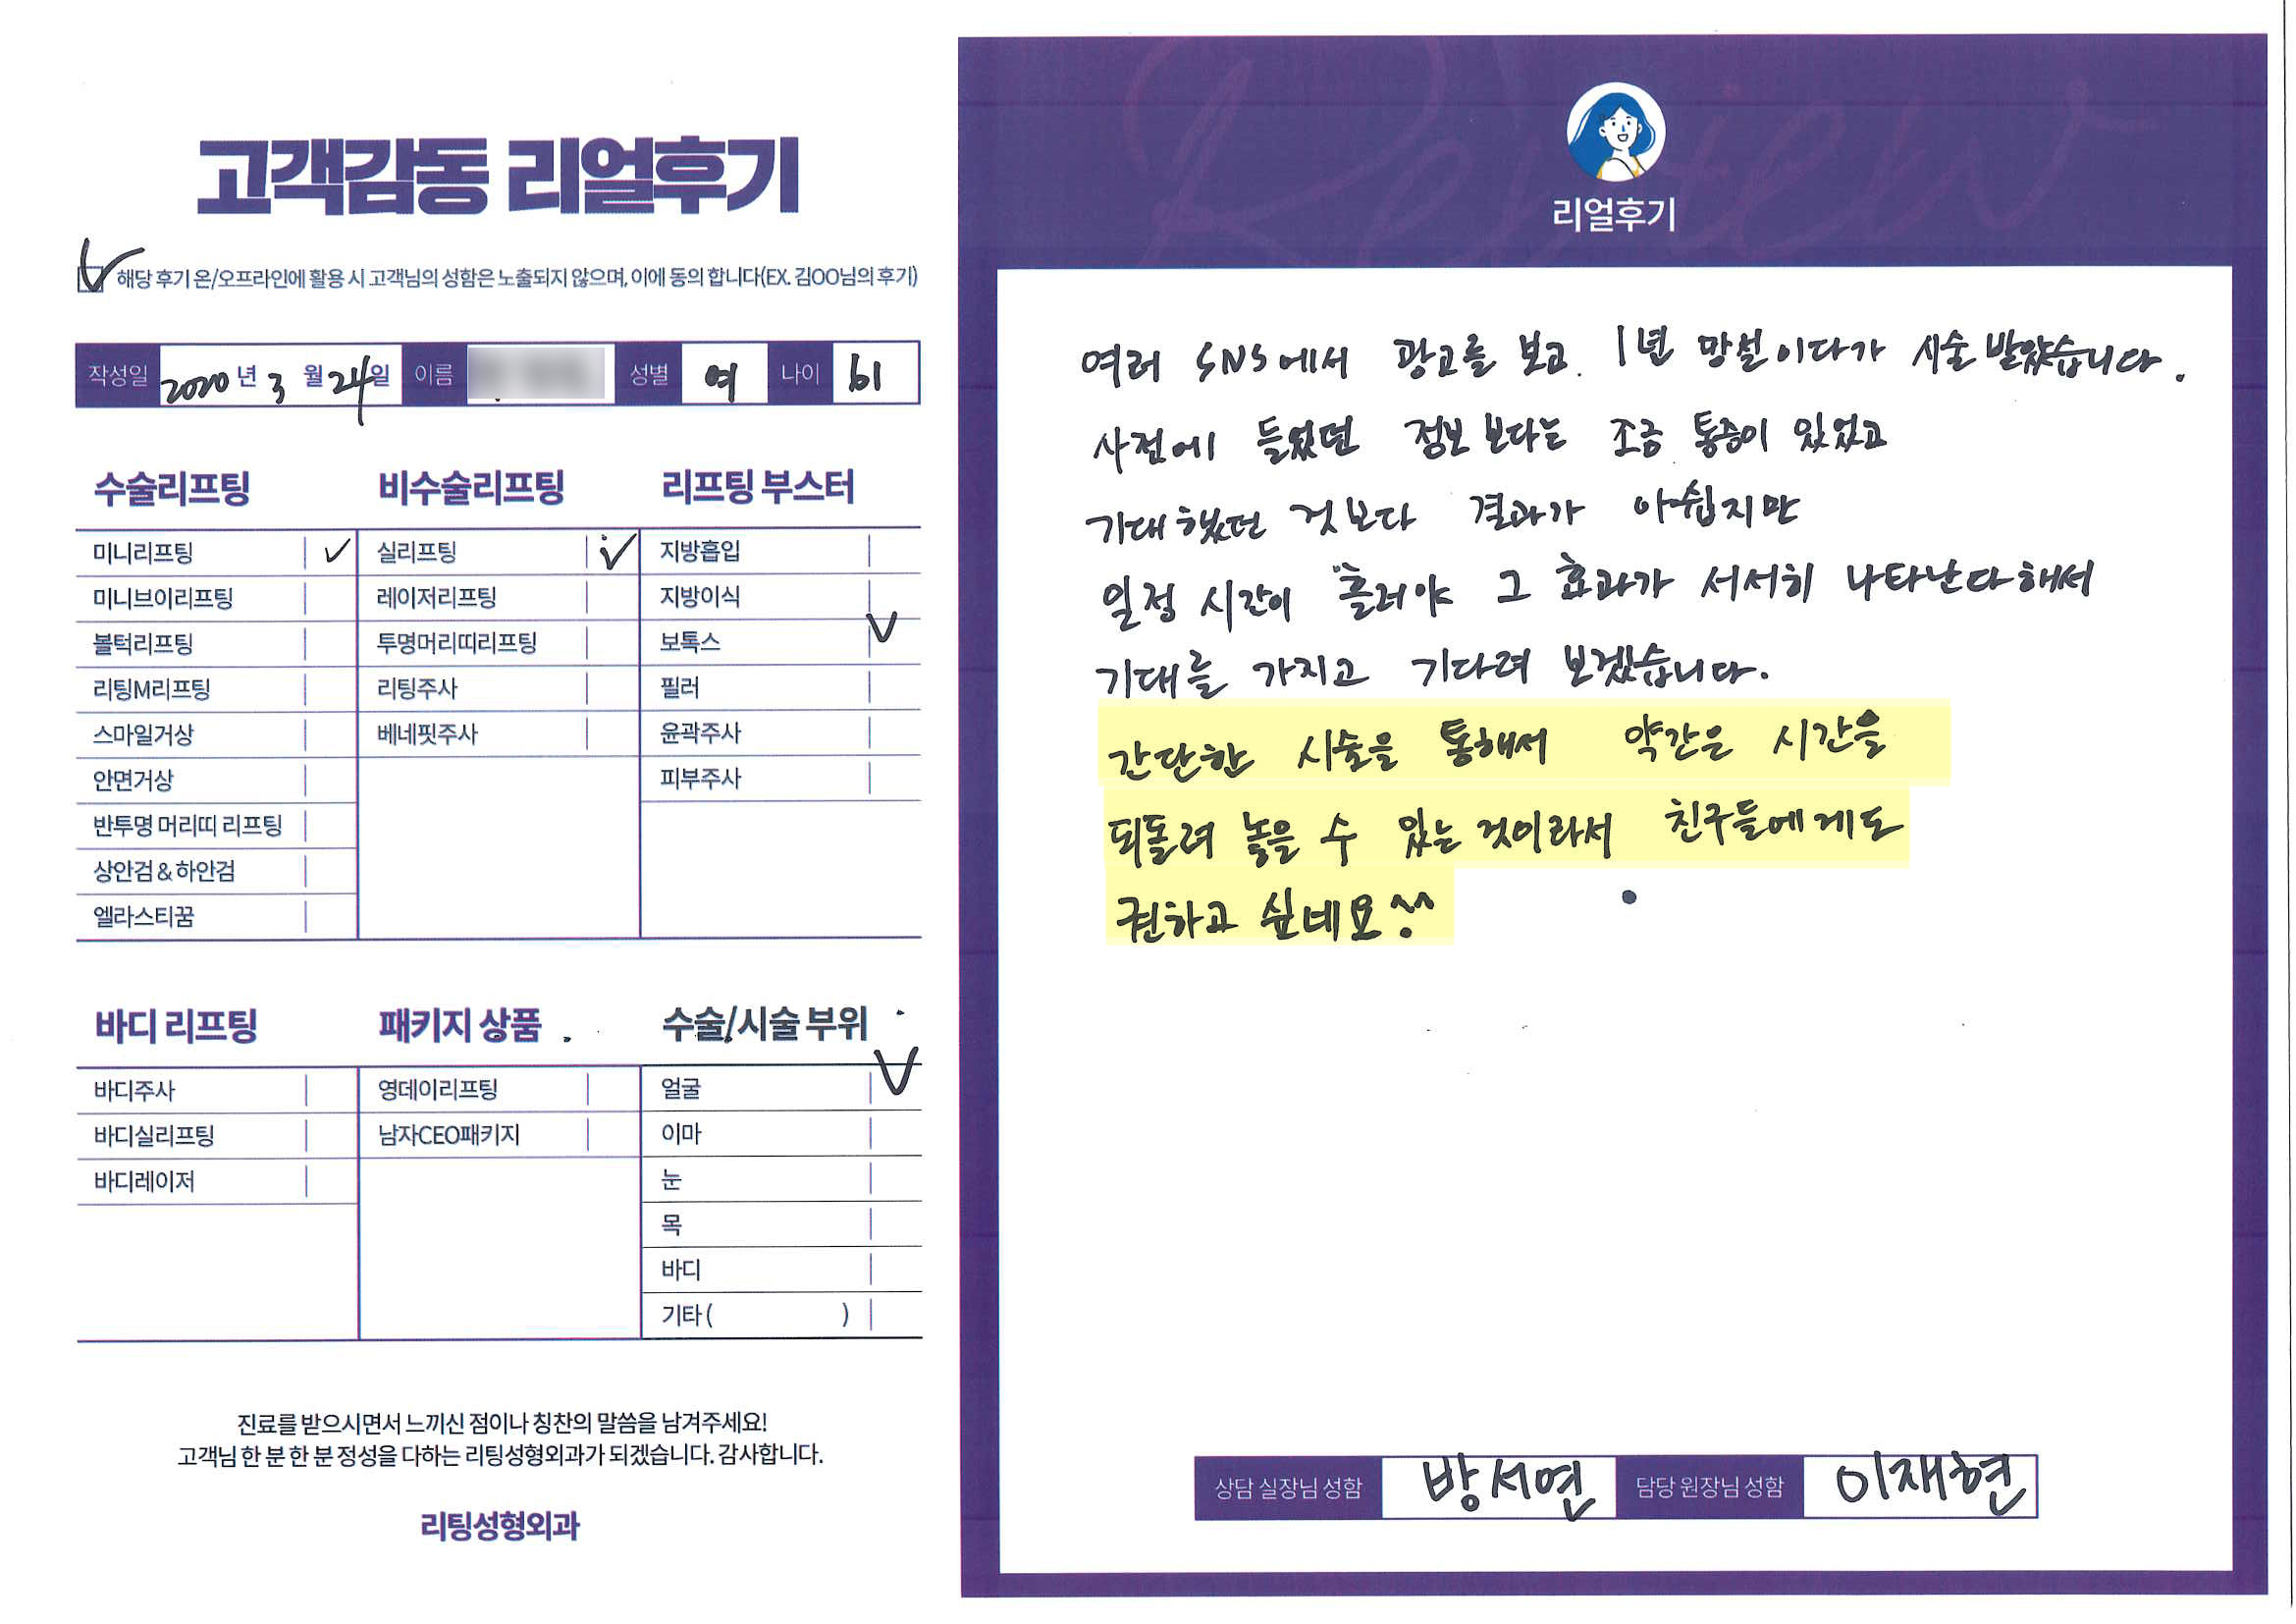 고객감동 리얼후기
해당 후기 온/오프라인에 활용 시 고객님의 성함은 노출되지 않으며, 이에 동의 합니다(EX. 김OO님의 후기)
작성일 2020 년 3 월 24 일 이름 성별 여 나이 61
수술리프팅
미니리프팅
미니브이리프팅
볼턱리프팅
리팅M리프팅
스마일거상
안면거상
반투명 머리띠 리프팅
상안검 & 하안검
엘라스티꿈
비수술리프팅
실리프팅
레이저리프팅
투명머리띠리프팅
리팅주사
베네핏주사
리프팅 부스터
지방흡입
지방이식
보톡스
필러
윤곽주사
피부주사
바디 리프팅
바디주사
바디실리프팅
바디레이저
패키지 상품
영데이리프팅
남자CEO패키지
수술/시술 부위
얼굴
이마
눈
목
바디
기타 ( )
진료를 받으시면서 느끼신 점이나 칭찬의 말씀을 남겨주세요!
고객님 한 분 한 분 정성을 다하는 리팅성형외과가 되겠습니다. 감사합니다.
리팅성형외과
Review
리얼후기
여러 SNS에서 광고를 보고. 1년 망설이다가 시술 받았습니다.
사전에 들었던 정보 보다는 조금 통증이 있었고
기대했던 것보다 결과가 아쉽지만
일정 시간이 흘러야 그 효과가 서서히 나타난다 해서
기대를 가지고 기다려 보겠습니다.
간단한 시술을 통해서 약간은 시간을
되돌려 놓을 수 있는 것이라서 친구들에게도
권하고 싶네요^^
상담 실장님 성함 방서연 담당 원장님 성함 이재현